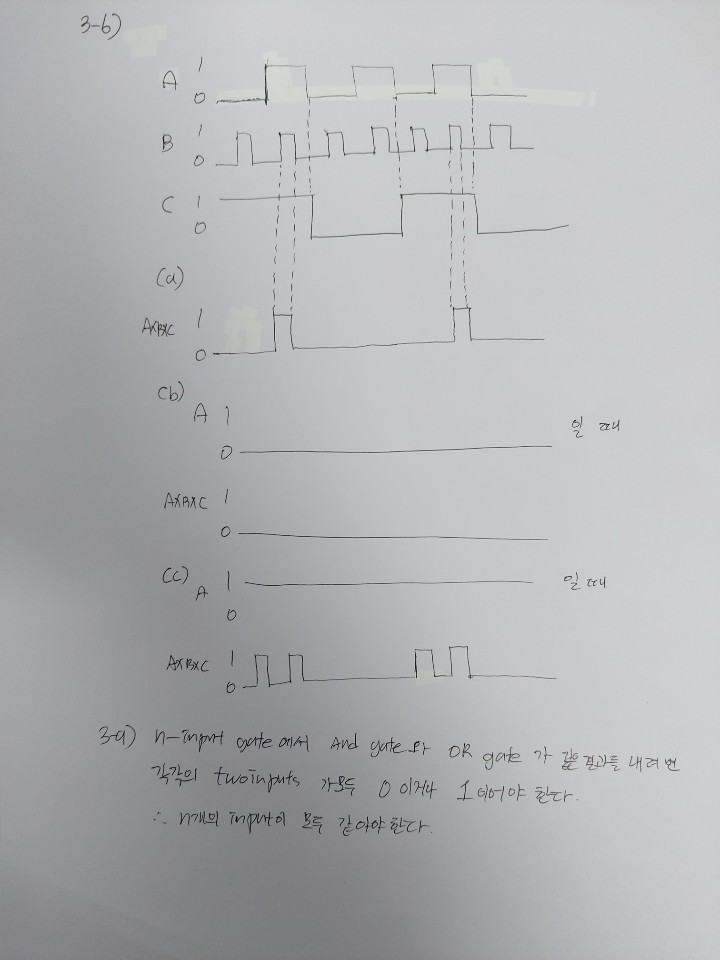 3-6)
A 1
0
B 1
0
C 1
0
(a)
A×B×C 1
0
(b)
A 1 일 때
0
A×B×C 1
0
(c) A 1 일 때
0
A×B×C 1
0
3-9) n-input gate에서 And gate와 OR gate가 같은 결과를 내려면
각각의 two inputs 가 모두 0 이거나 1 이어야 한다.
∴ n개의 input이 모두 같아야한다.